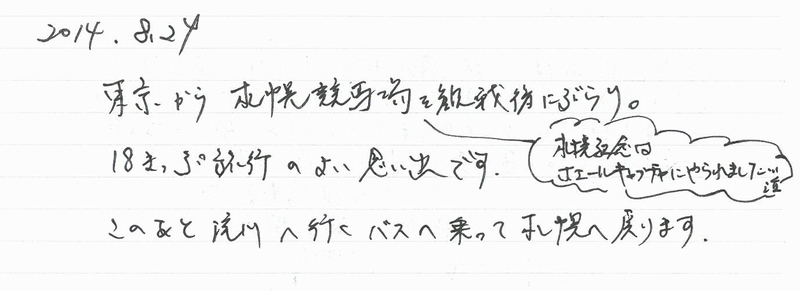 2014.8.24
東京から 札幌競馬場を観戦後にぶらり。
札幌記念は
ホエールキャプチャにやられました…
18きっぷ旅行のよい思い出です.
このあと滝川へ行くバスへ乗って札幌へ戻ります.